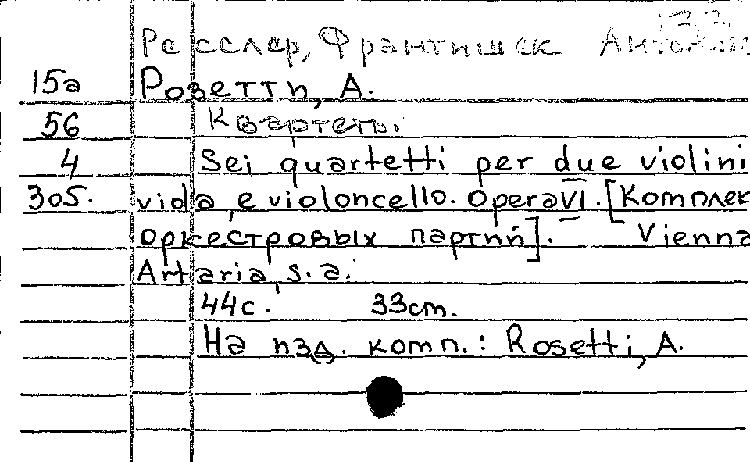 Расслер, Франтишек Антонин
15а Розетти, А.
56 Квартеты.
4 Sei quartetti per due violini
305. viola e violoncello. Opera VI. [Комплек
оркестровых партий]. Vienna
Artaria, s. a.
44с. 33cm.
На изд. комп.: Rosetti, A.